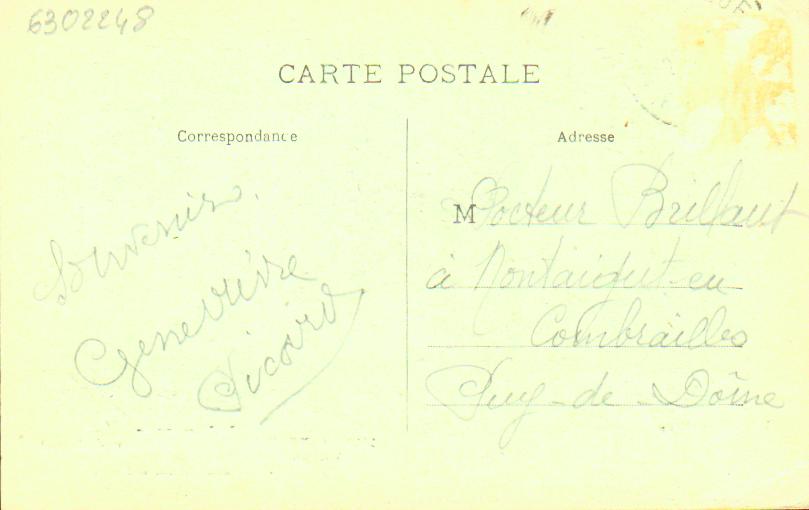 6302248
CARTE POSTALE
Correspondance
Adresse
Souvenir.
Geneviève
Picard
M Docteur Brillaut
à Montaigut-en
Combrailles
Puy-de-Dôme